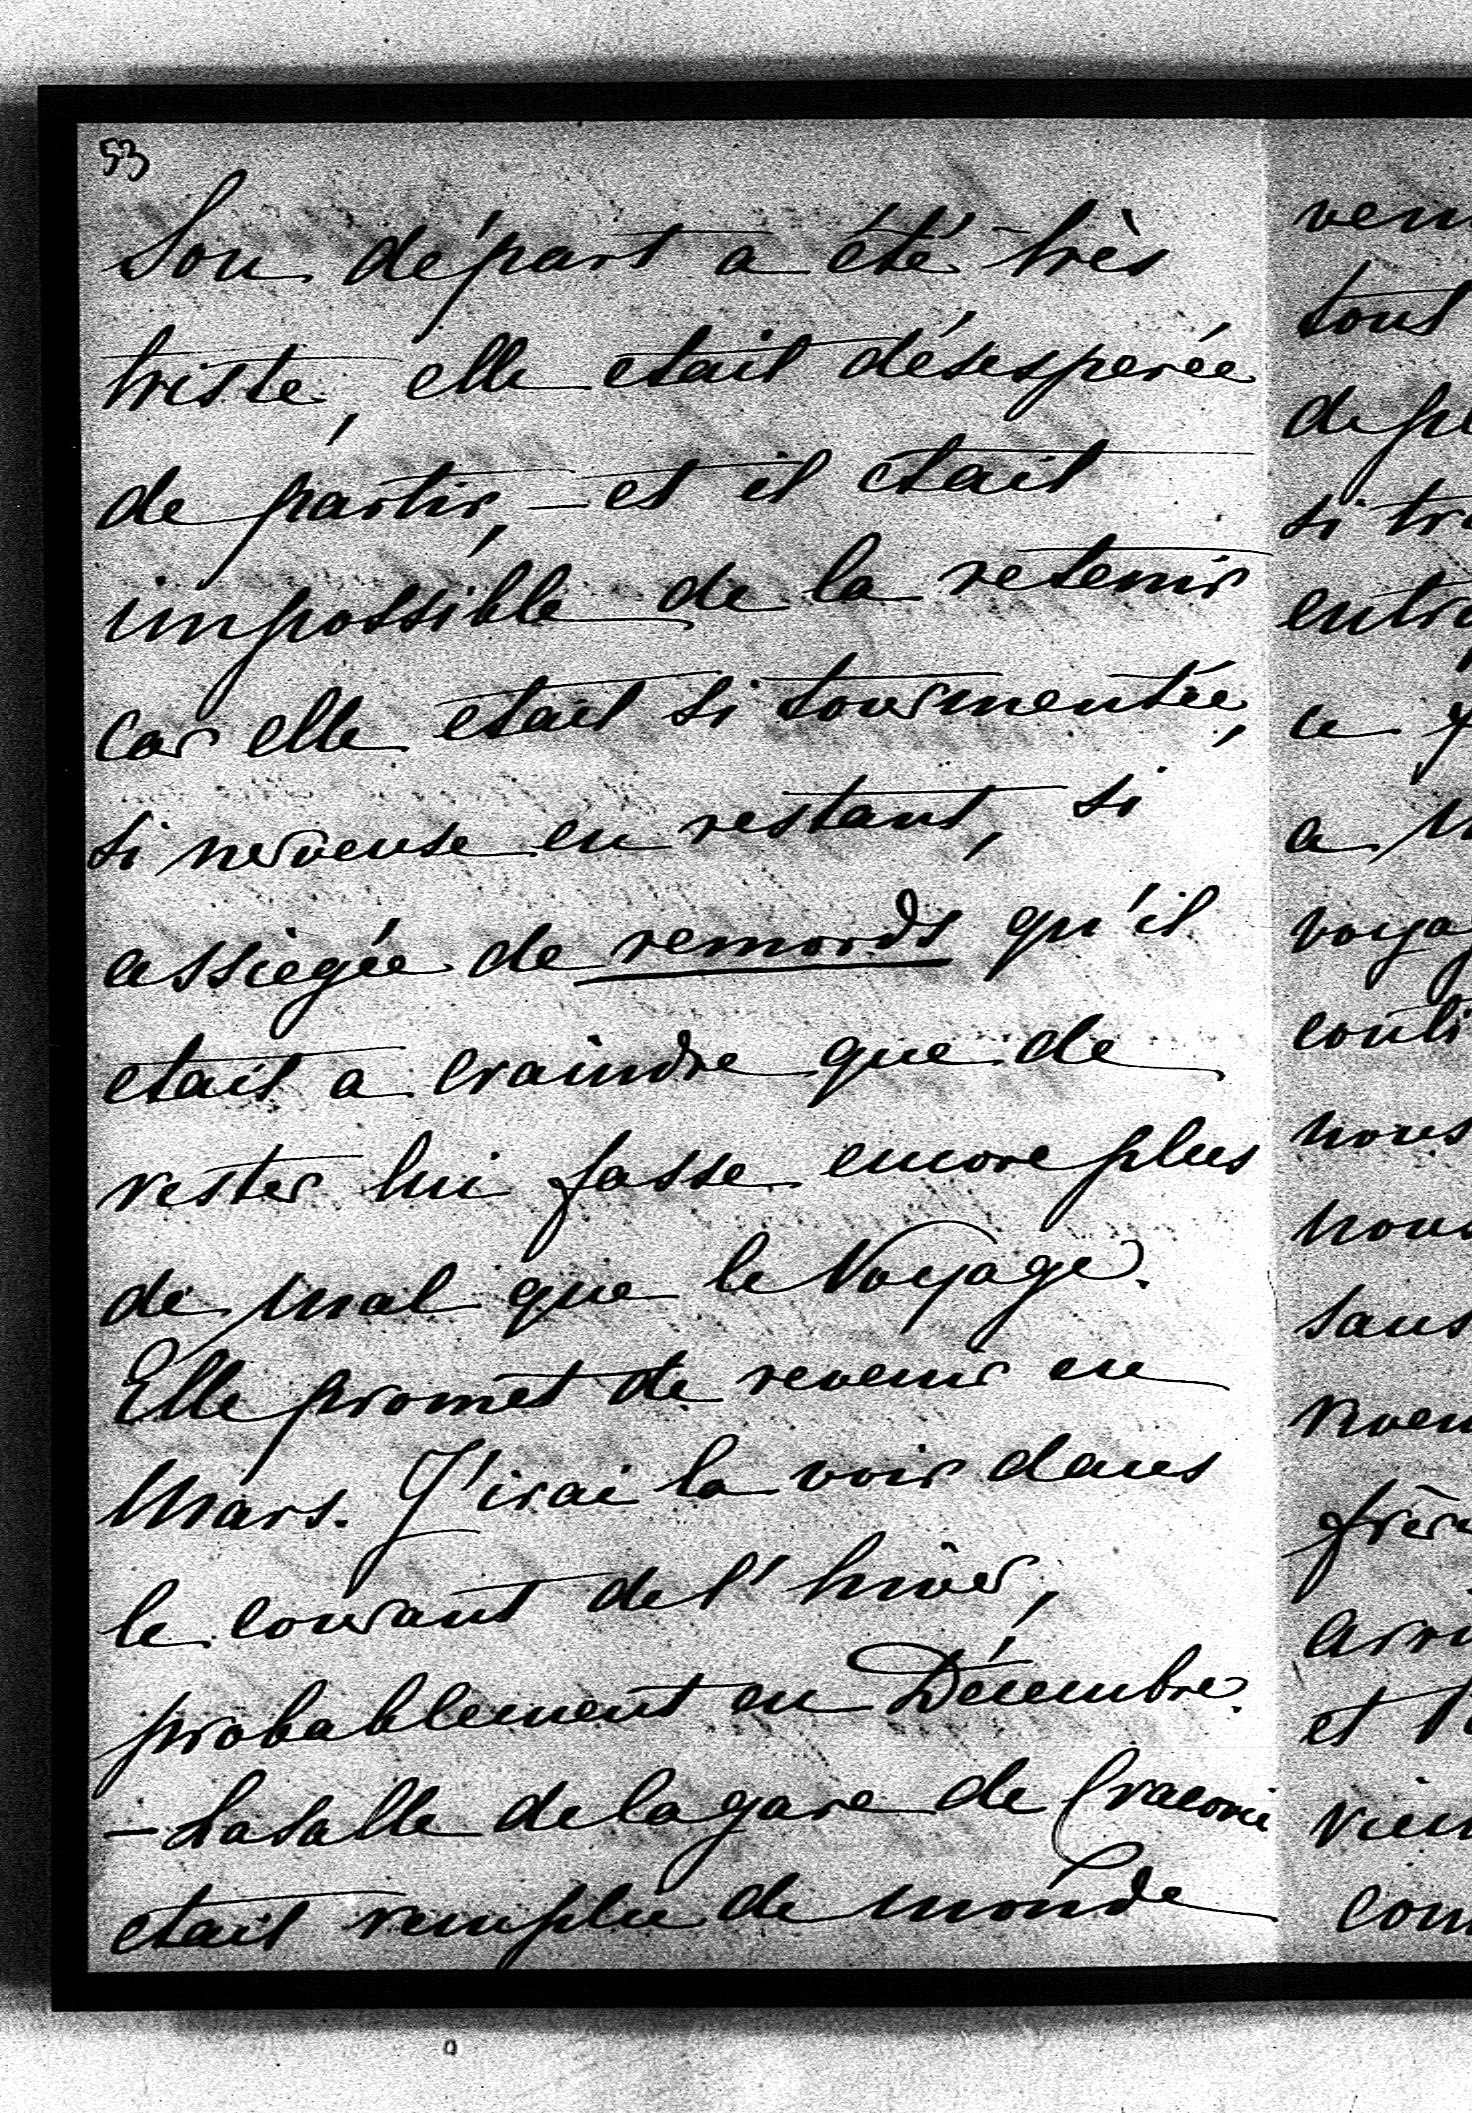 53
Son départ a été très
triste, elle etait désesperée
de partir, – et il etait
impossible de la retenir
car elle etait si tourmentée,
si nerveuse en restant, si
assiegée de remords qu'il
etait a craindre que de
rester lui fasse encore plus
de mal que le Voyage.
Elle promet de revenir en
Mars. J'irai la voir dans
le courant de l'hiver,
probablement en Décembre.
– La salle de la gare de Cracovie
etait remplie de monde
tout
si
ce
a
nous
sans
et